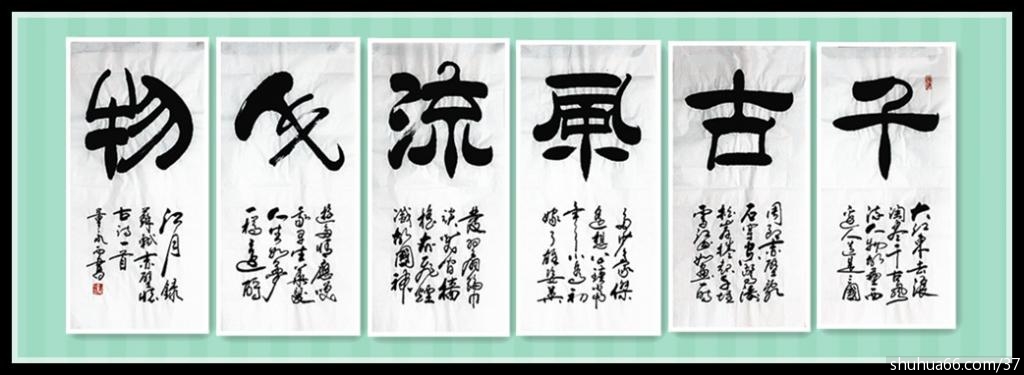 千
大江東去浪
淘盡千古風
流人物故壘西
邊人道是三國
古
周郎赤壁亂
石穿空驚濤
拍岸捲起千堆
雪江山如畫一時
風
多少豪傑
遙想公瑾當
年小喬初
嫁了雄姿英
流
發羽扇綸巾
談笑間檣
櫓灰飛煙
滅故國神
遊多情應笑
我早生華髮
人生如夢
一樽還酹
物
江月 錄
蘇軾赤壁懷
古詞一首
shuhua66.com/37